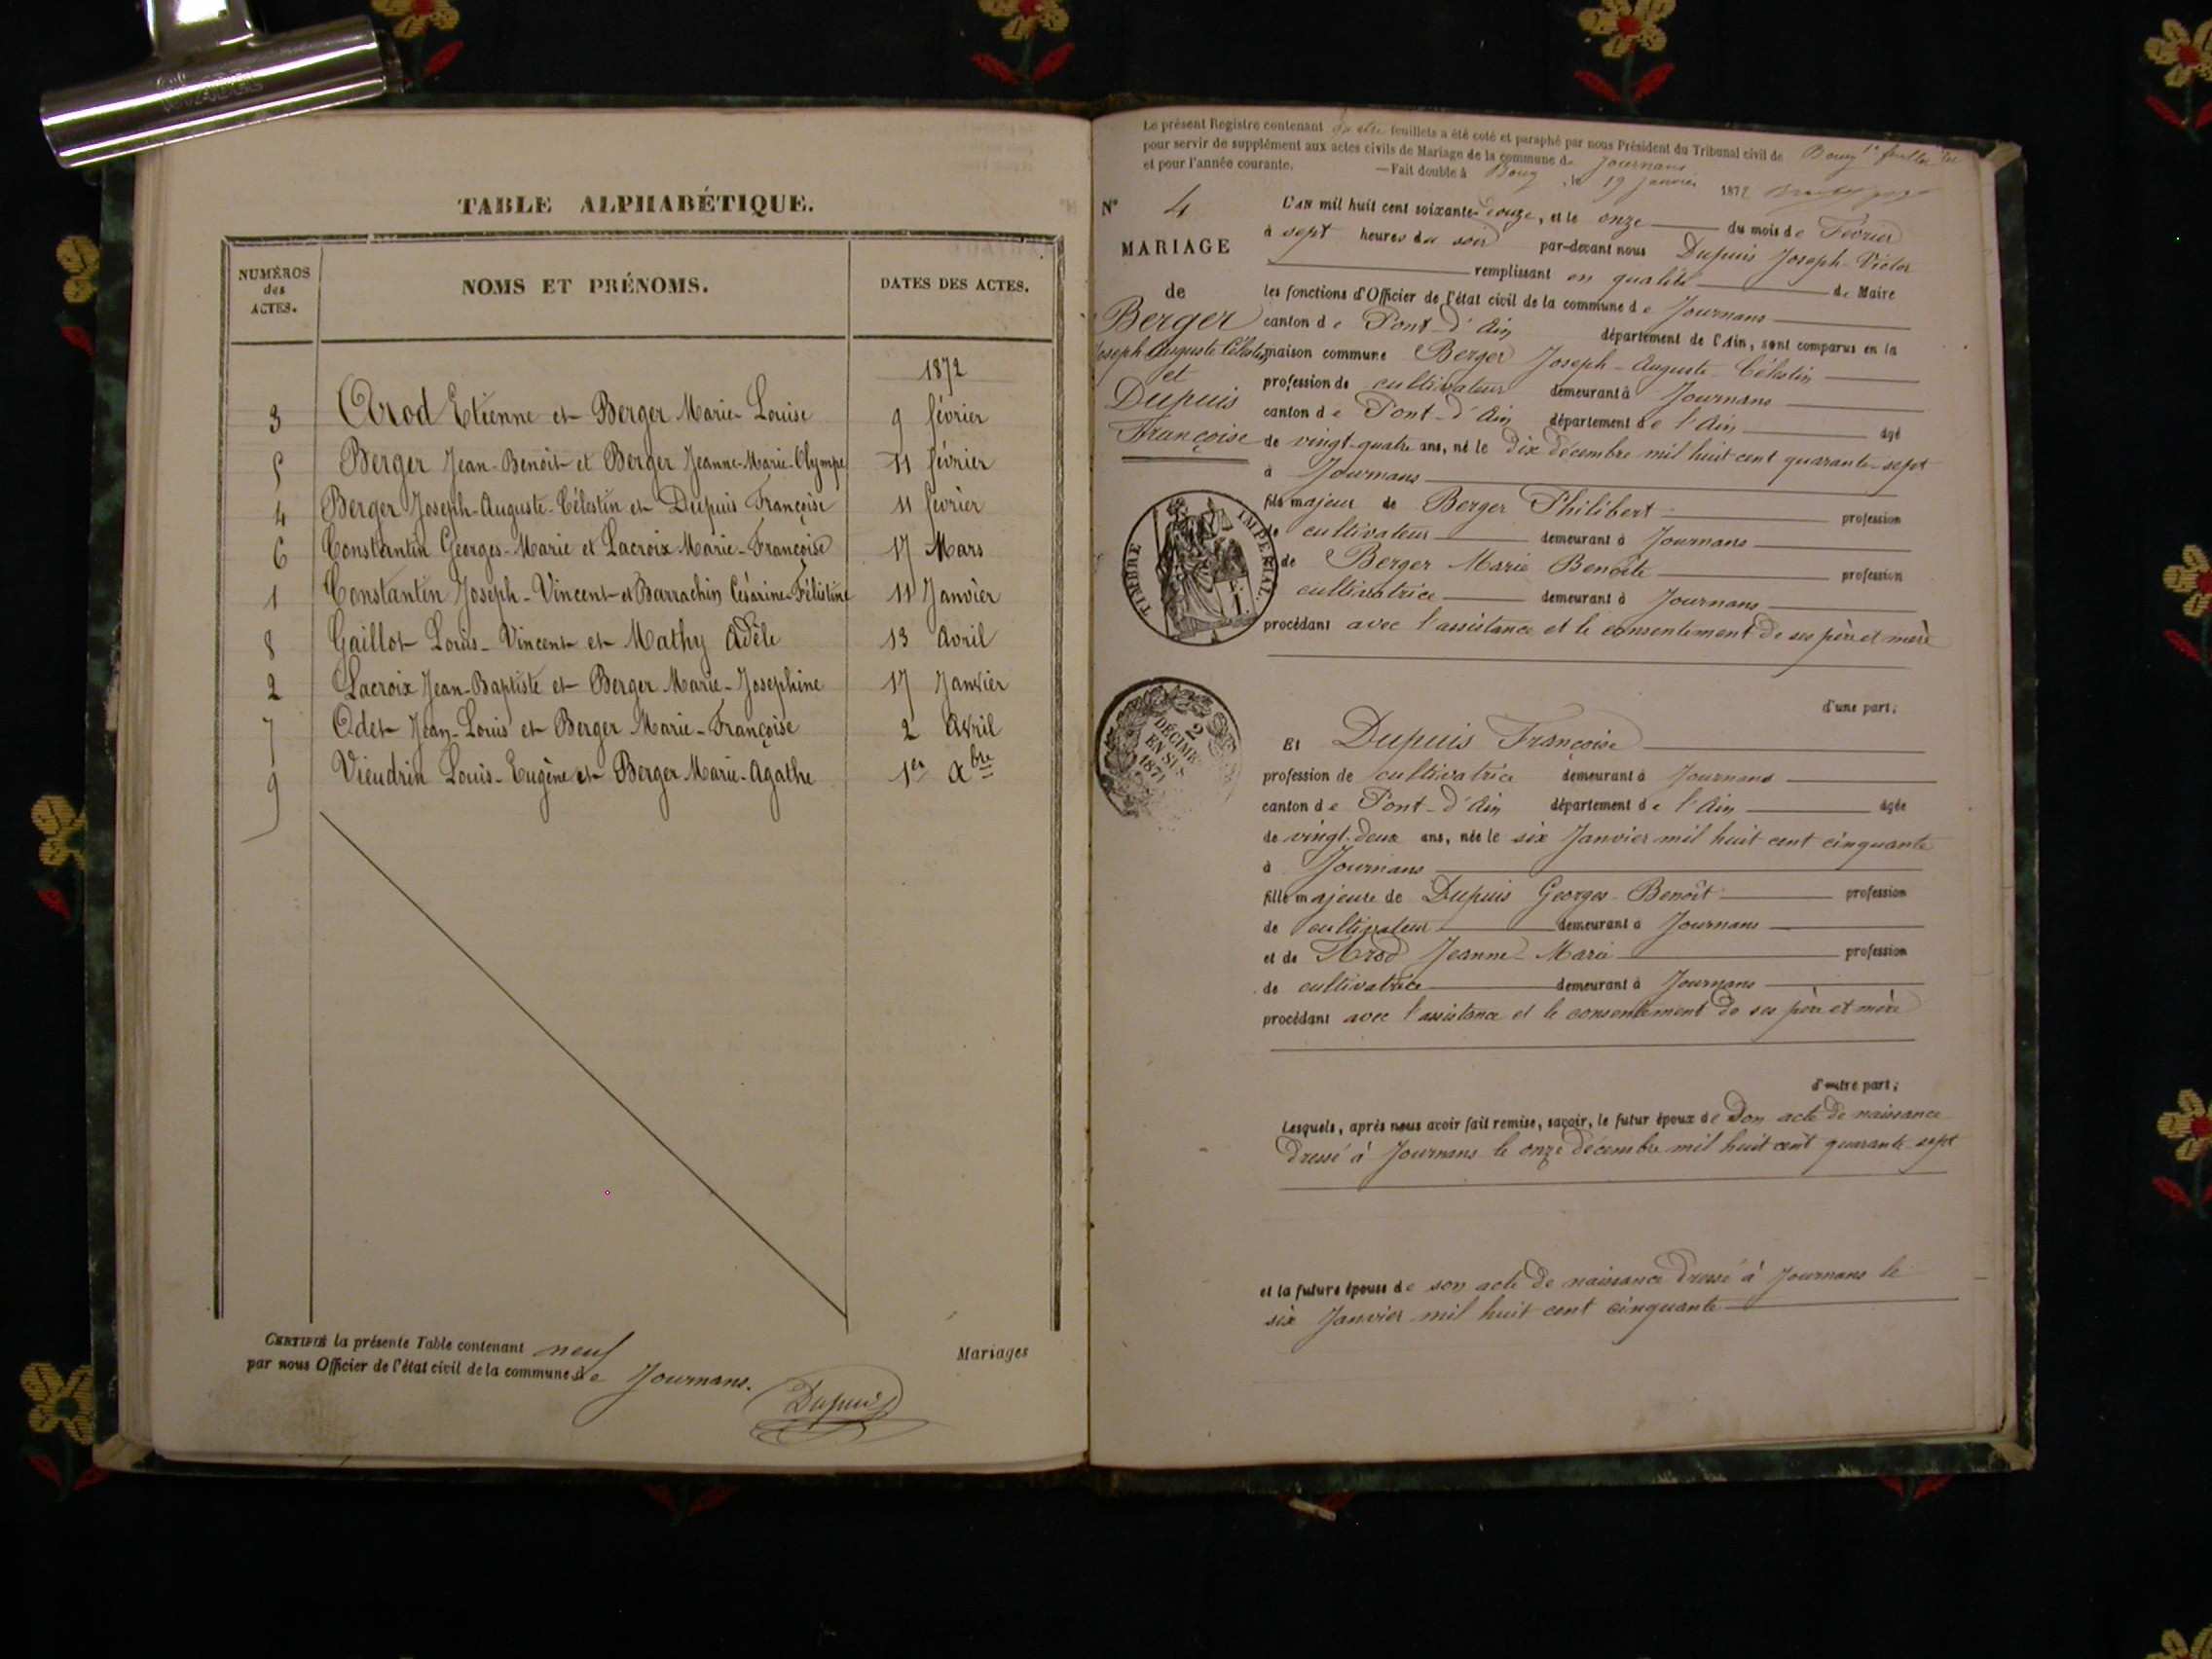 TABLE ALPHABÉTIQUE.
NUMÉROS des ACTES.
NOMS ET PRÉNOMS.
DATES DES ACTES.
1872
3 Arod Etienne et Berger Marie-Louise 9 février
5 Berger Jean-Benoit et Berger Jeanne-Marie-Olympe 11 février
4 Berger Joseph-Auguste-Célestin et Dupuis Françoise 11 février
6 Constantin Georges-Marie et Lacroix Marie-Françoise 17 Mars
1 Constantin Joseph-Vincent et Barrachin Césarine-Félistine 11 Janvier
8 Gaillot Louis-Vincent et Mathy Adèle 13 Avril
2 Lacroix Jean-Baptiste et Berger Marie-Josephine 17 Janvier
7 Odet Jean-Louis et Berger Marie-Françoise 2 Avril
9 Vieudrin Louis-Eugène et Berger Marie-Agathe 1er Xbre
CERTIFIÉ la présente Table contenant neuf Mariages
par nous Officier de l'état civil de la commune de Journans.
Dupuis
Le présent Registre contenant feuillets a été coté et paraphé par nous Président du Tribunal civil de Bourg
pour servir de supplément aux actes civils de Mariage de la commune de Journans
et pour l'année courante. — Fait double à Bourg, le 19 janvier 1872
N° 4
MARIAGE
de
Berger
Joseph Auguste Célestin
et
Dupuis
Françoise
TIMBRE IMPÉRIAL.
2 DÉCIMES EN SUS 1871
L'AN mil huit cent soixante-douze, et le onze du mois de Février
à sept heures du soir par-devant nous Dupuis Joseph-Victor
remplissant en qualité de Maire
les fonctions d'Officier de l'état civil de la commune de Journans
canton de Pont-d'Ain département de l'Ain, sont comparus en la
maison commune Berger Joseph-Auguste-Célestin
profession de cultivateur demeurant à Journans
canton de Pont-d'Ain département de l'Ain âgé
de vingt-quatre ans, né le dix décembre mil huit cent quarante-sept
à Journans
fils majeur de Berger Philibert profession
de cultivateur demeurant à Journans
de Berger Marie Benoîte profession
cultivatrice demeurant à Journans
procédant avec l'assistance et le consentement de ses père et mère
d'une part;
Et Dupuis Françoise
profession de cultivatrice demeurant à Journans
canton de Pont-d'Ain département de l'Ain âgée
de vingt-deux ans, née le six Janvier mil huit cent cinquante
à Journans
fille majeure de Dupuis Georges-Benoît profession
de cultivateur demeurant à Journans
et de Arod Jeanne-Marie profession
de cultivatrice demeurant à Journans
procédant avec l'assistance et le consentement de ses père et mère
d'autre part;
Lesquels, après nous avoir fait remise, savoir, le futur époux de Son acte de naissance
dressé à Journans le onze décembre mil huit cent quarante-sept
et la future épouse de son acte de naissance dressé à Journans le
six Janvier mil huit cent cinquante